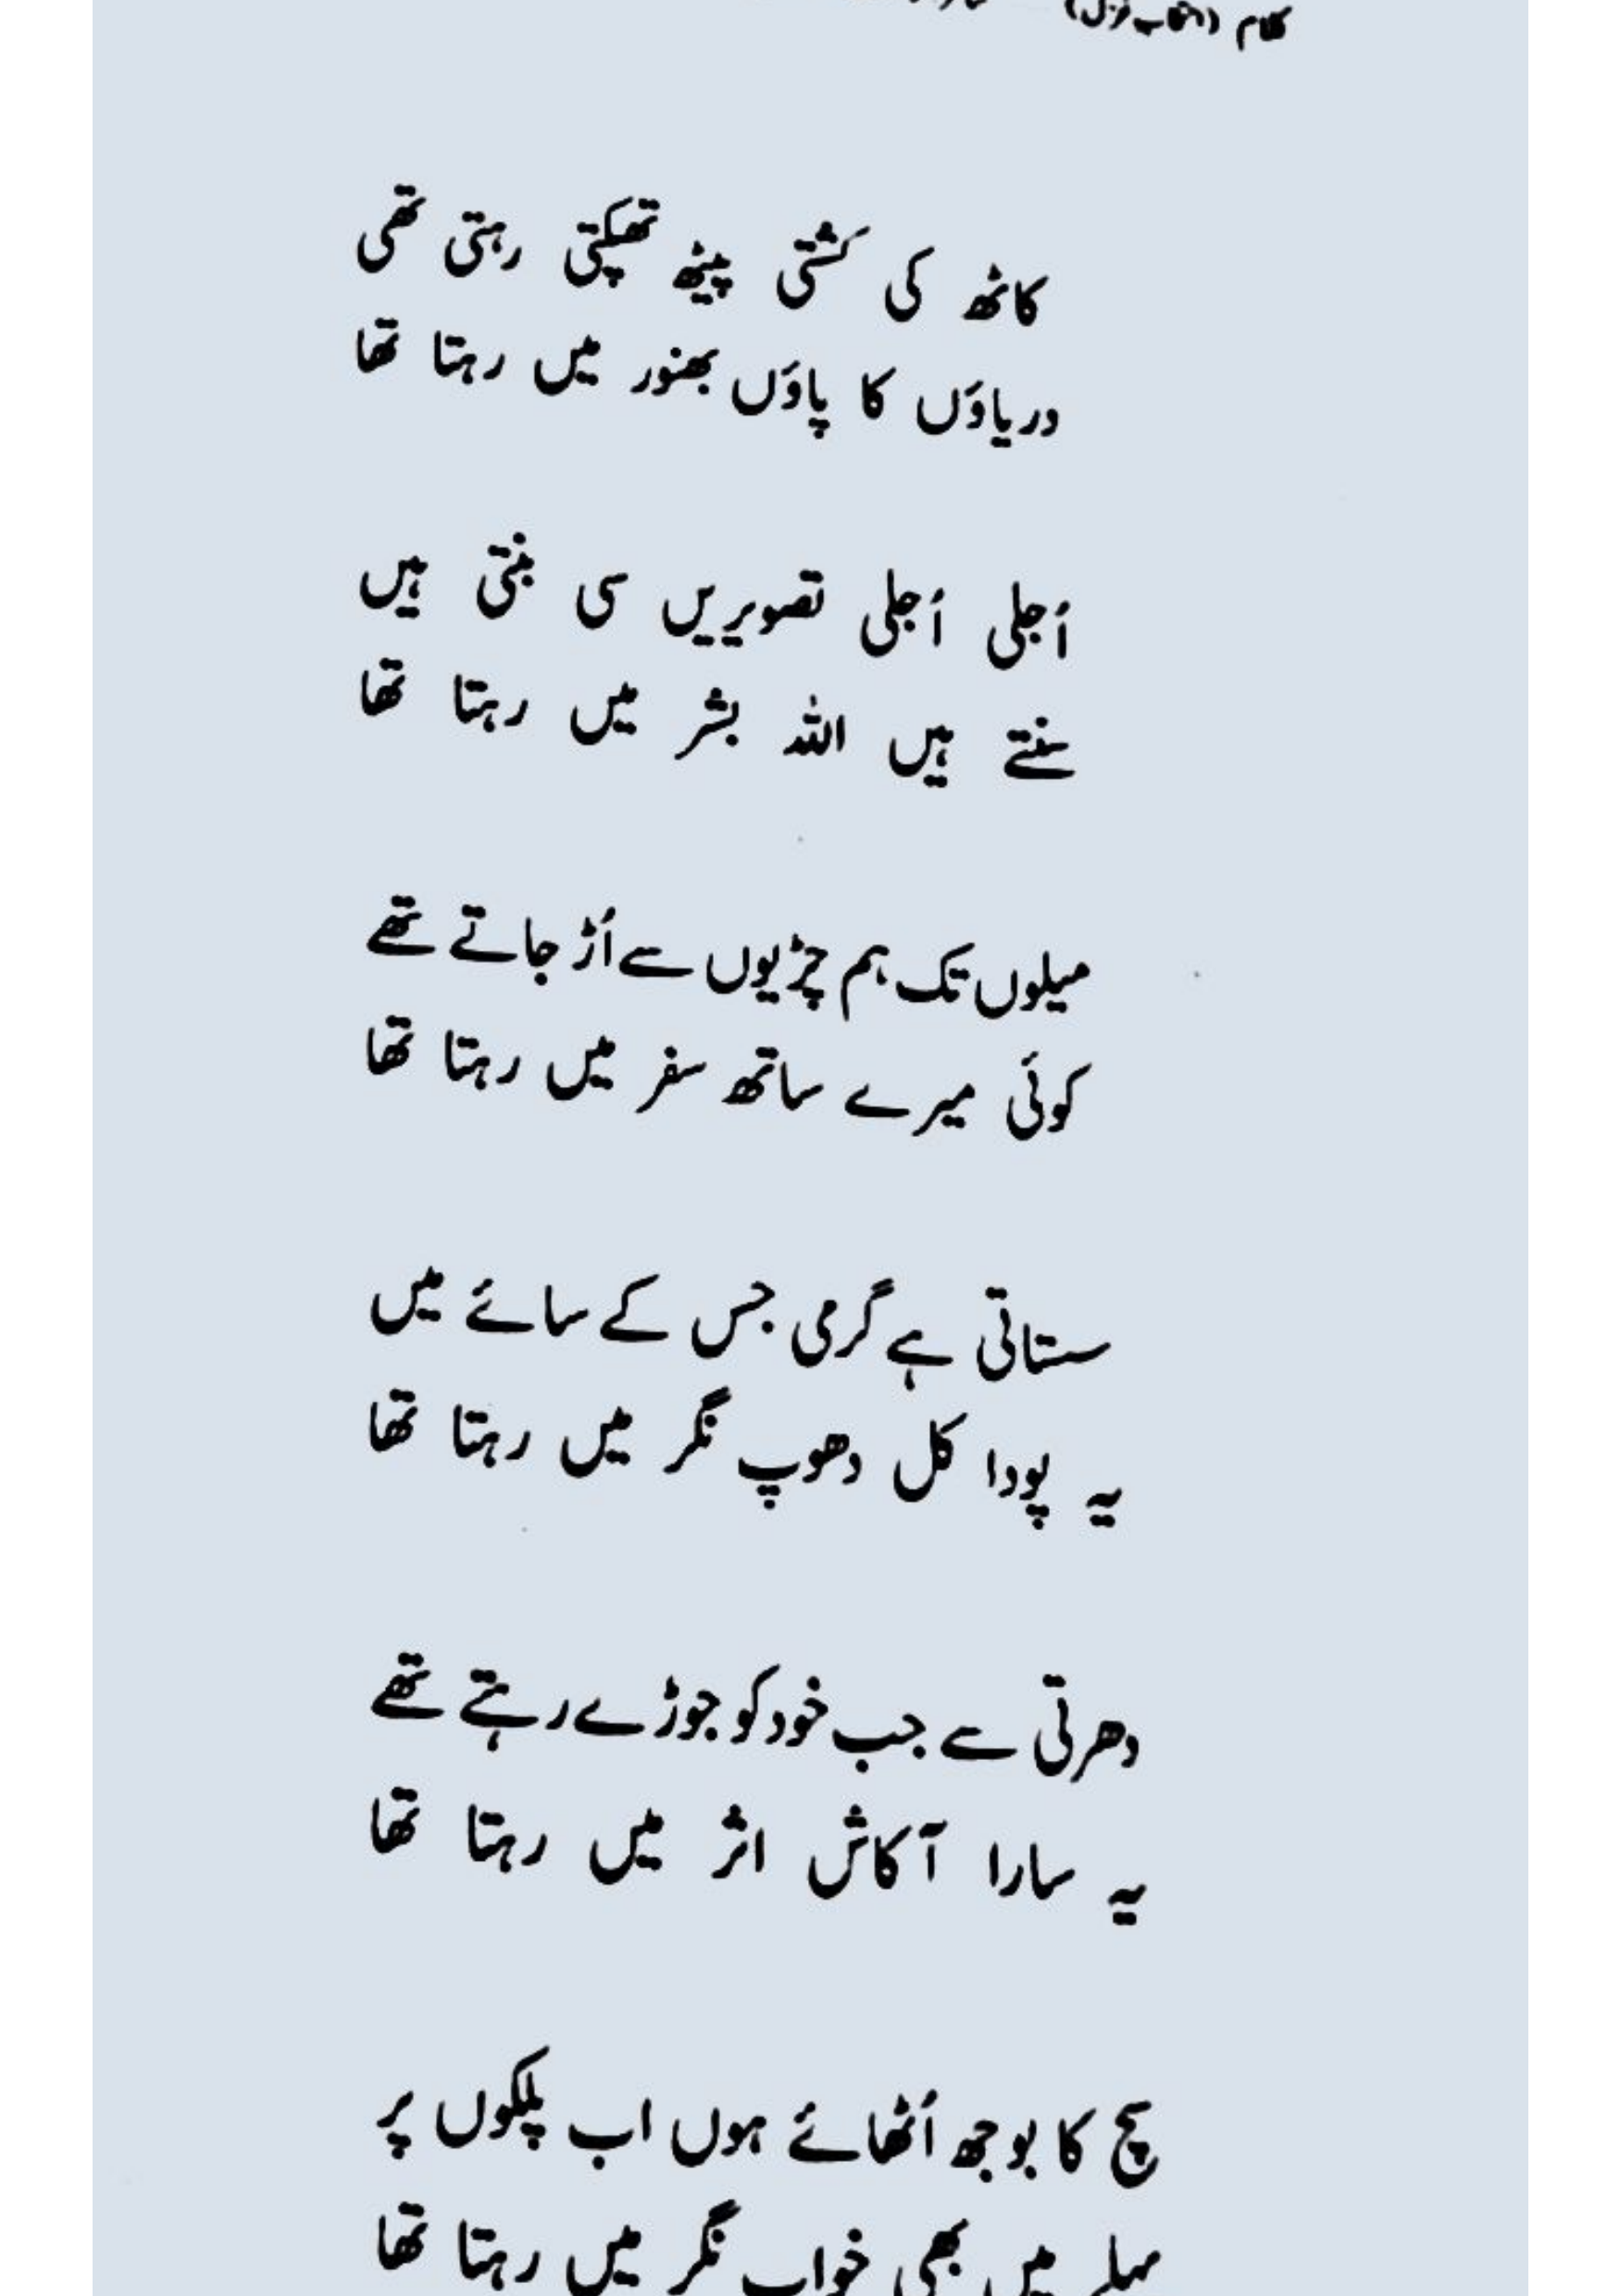 کلام (انتخاب غزل)
کاٹھ کی کشتی پیٹھ تھپکتی رہتی تھی
دریاؤں کا پاؤں بھنور میں رہتا تھا
اُجلی اُجلی تصویریں سی بنتی ہیں
سنتے ہیں اللہ بشر میں رہتا تھا
میلوں تک ہم چڑیوں سے اُڑ جاتے تھے
کوئی میرے ساتھ سفر میں رہتا تھا
سستاتی ہے گرمی جس کے سائے میں
یہ پودا کل دھوپ نگر میں رہتا تھا
دھرتی سے جب خود کو جوڑے رہتے تھے
یہ سارا آکاش اثر میں رہتا تھا
سچ کا بوجھ اُٹھائے ہوں اب پلکوں پر
پہلے میں بھی خواب نگر میں رہتا تھا